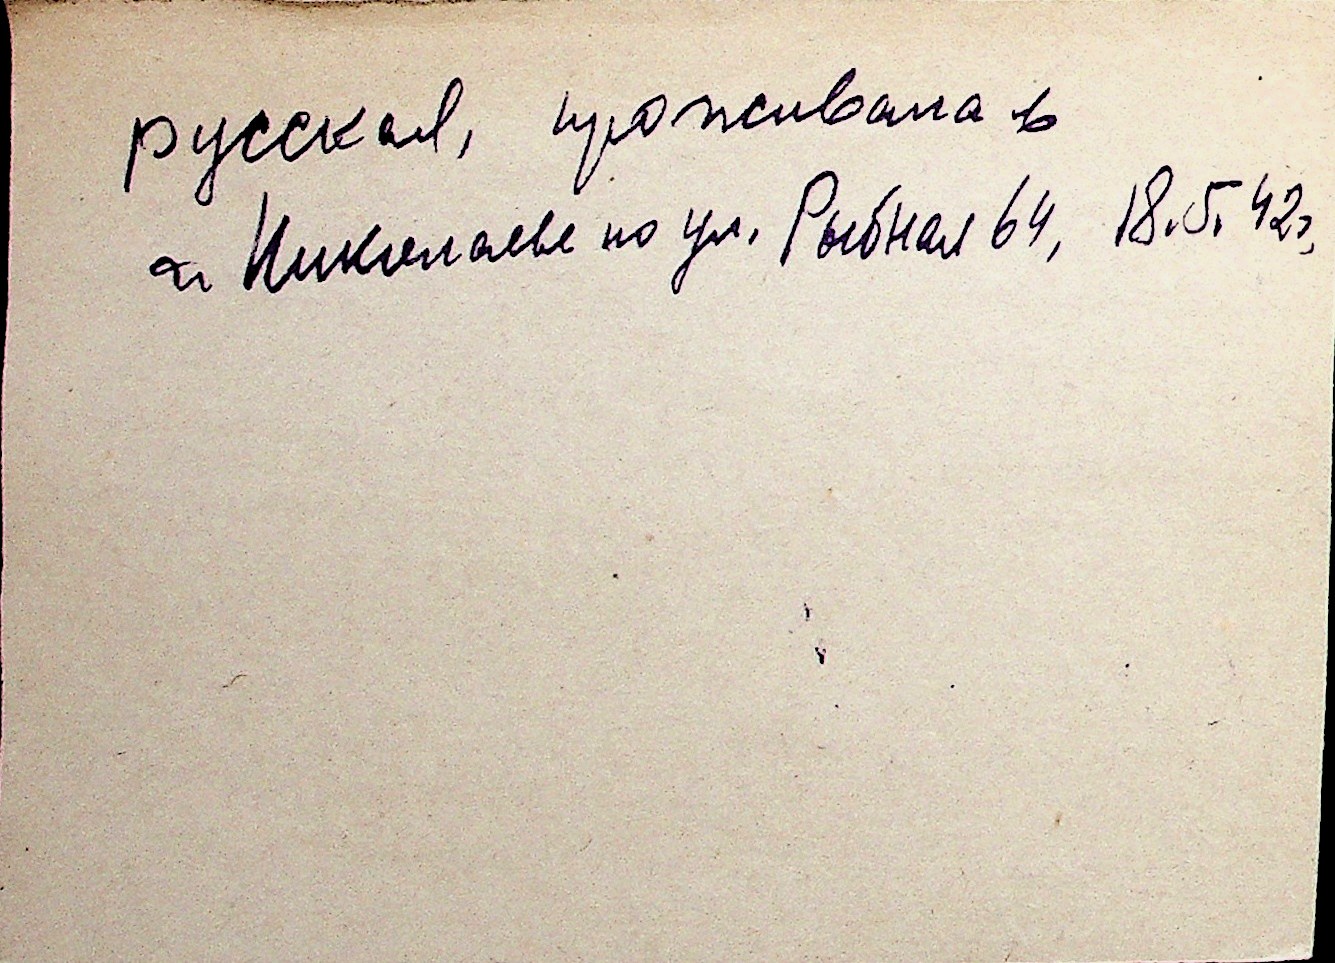 русская, проживала в
г. Николаеве по ул. Рыбная 64, 18.5.42г.